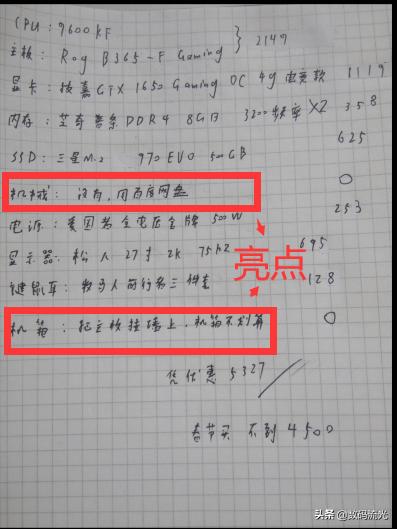 CPU：9600KF
主板：Rog B365-F Gaming } 2149
显卡：技嘉GTX 1650 Gaming OC 4g 电竞款 1119
内存：芝奇普条DDR4 8GB 3200频率X2 358
SSD：三星M.2 970 EVO 500GB 625
机械：没有，用百度网盘 0
电源：爱国者全电压金牌500W 253
显示器：松人27寸2k 75hz 695
亮点
键鼠耳：牧马人前行者三件套 128
机箱：把主板挂墙上，机箱不划算 0
凭优惠 5327
春节买 不到4500
头条 @数码流光